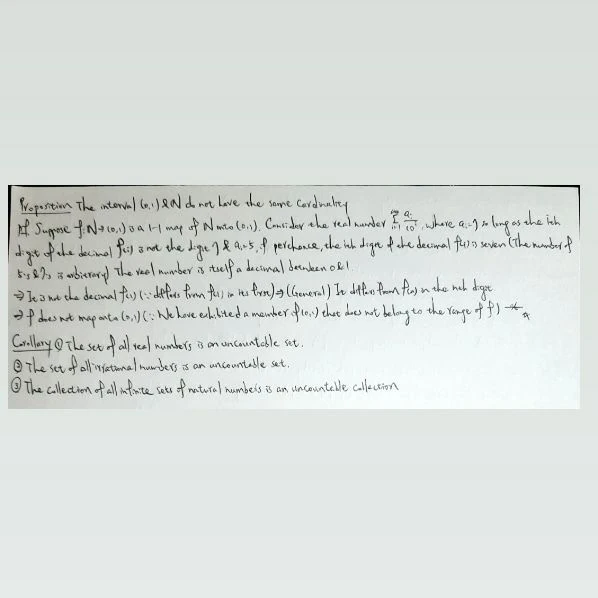 Proposition The interval (0,1) & N do not have the same cardinality
pf Suppose f: N→(0,1) is a 1-1 map of N onto (0,1). Consider the real number ∑_{i=1}^{∞} a_i/10^i, where a_i=7 so long as the ith
digit of the decimal f(i) is not the digit 7 & a_i=5, if perchance, the ith digit of the decimal f(i) is seven (The number of
5,7 & ?s is arbitrary) The real number is itself a decimal between 0 & 1.
⇒ It is not the decimal f(1) (∵ differs from f(1) in its first) ⇒ (General) It differs from f(n) in the nth digit
⇒ f does not map onto (0,1) (∵ We have exhibited a member of (0,1) that does not belong to the range of f)
Corollary ① The set of all real numbers is an uncountable set.
② The set of all irrational numbers is an uncountable set.
③ The collection of all infinite sets of natural numbers is an uncountable collection